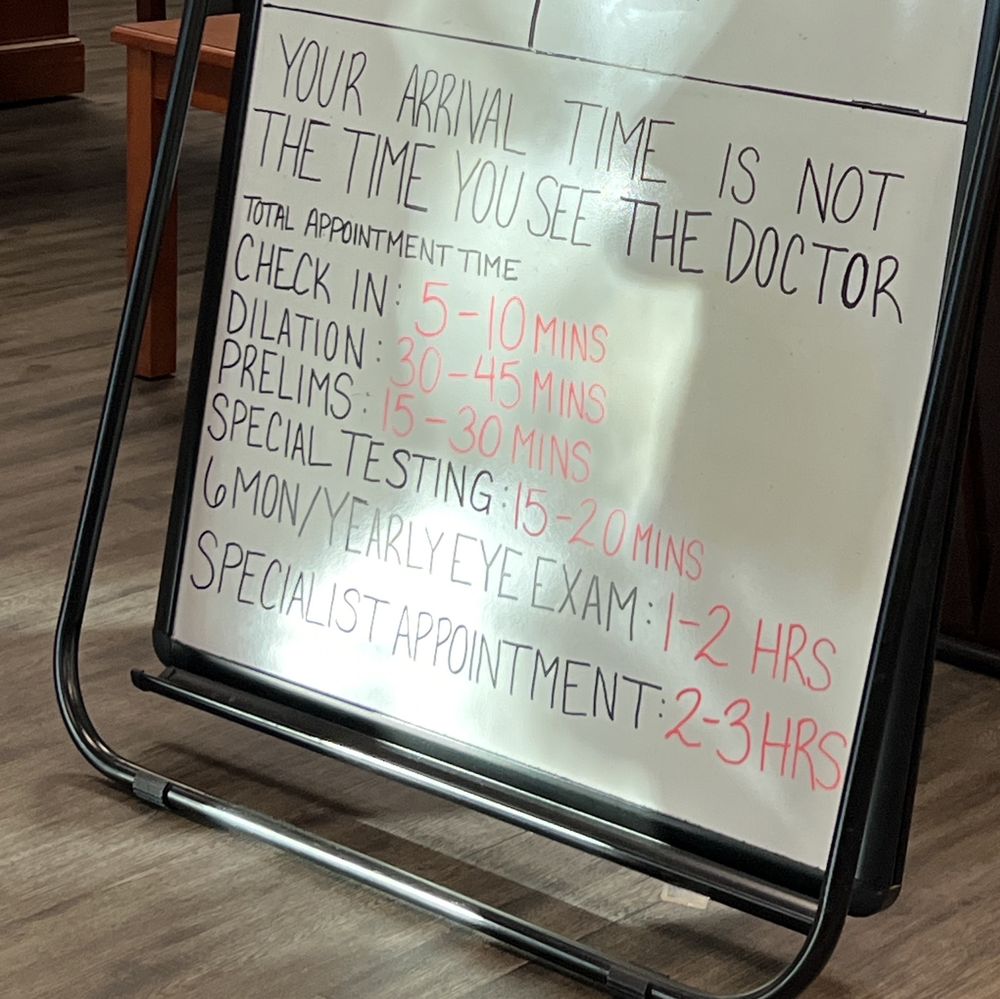 YOUR ARRIVAL TIME IS NOT
THE TIME YOU SEE THE DOCTOR
TOTAL APPOINTMENT TIME
CHECK IN: 5-10 MINS
DILATION: 30-45 MINS
PRELIMS: 15-30 MINS
SPECIAL TESTING: 15-20 MINS
6 MON/YEARLY EYE EXAM: 1-2 HRS
SPECIALIST APPOINTMENT: 2-3 HRS